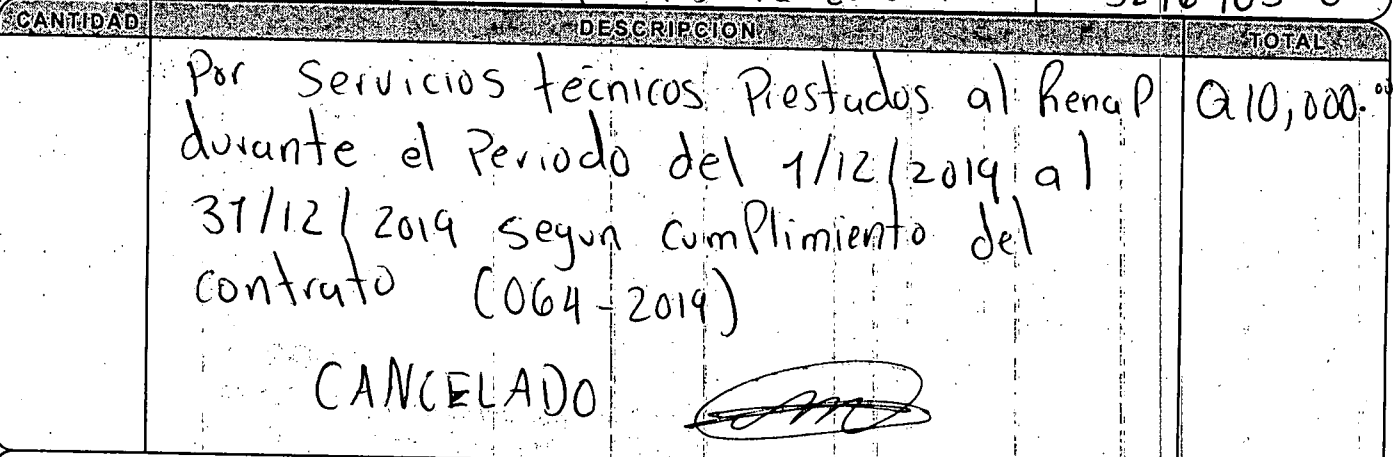 CANTIDAD DESCRIPCION TOTAL
Por Servicios técnicos Prestados al Renap Q10,000.00
durante el Periodo del 1/12/2019 al
31/12/2019 segun cumplimiento del
contrato (064-2019)
CANCELADO